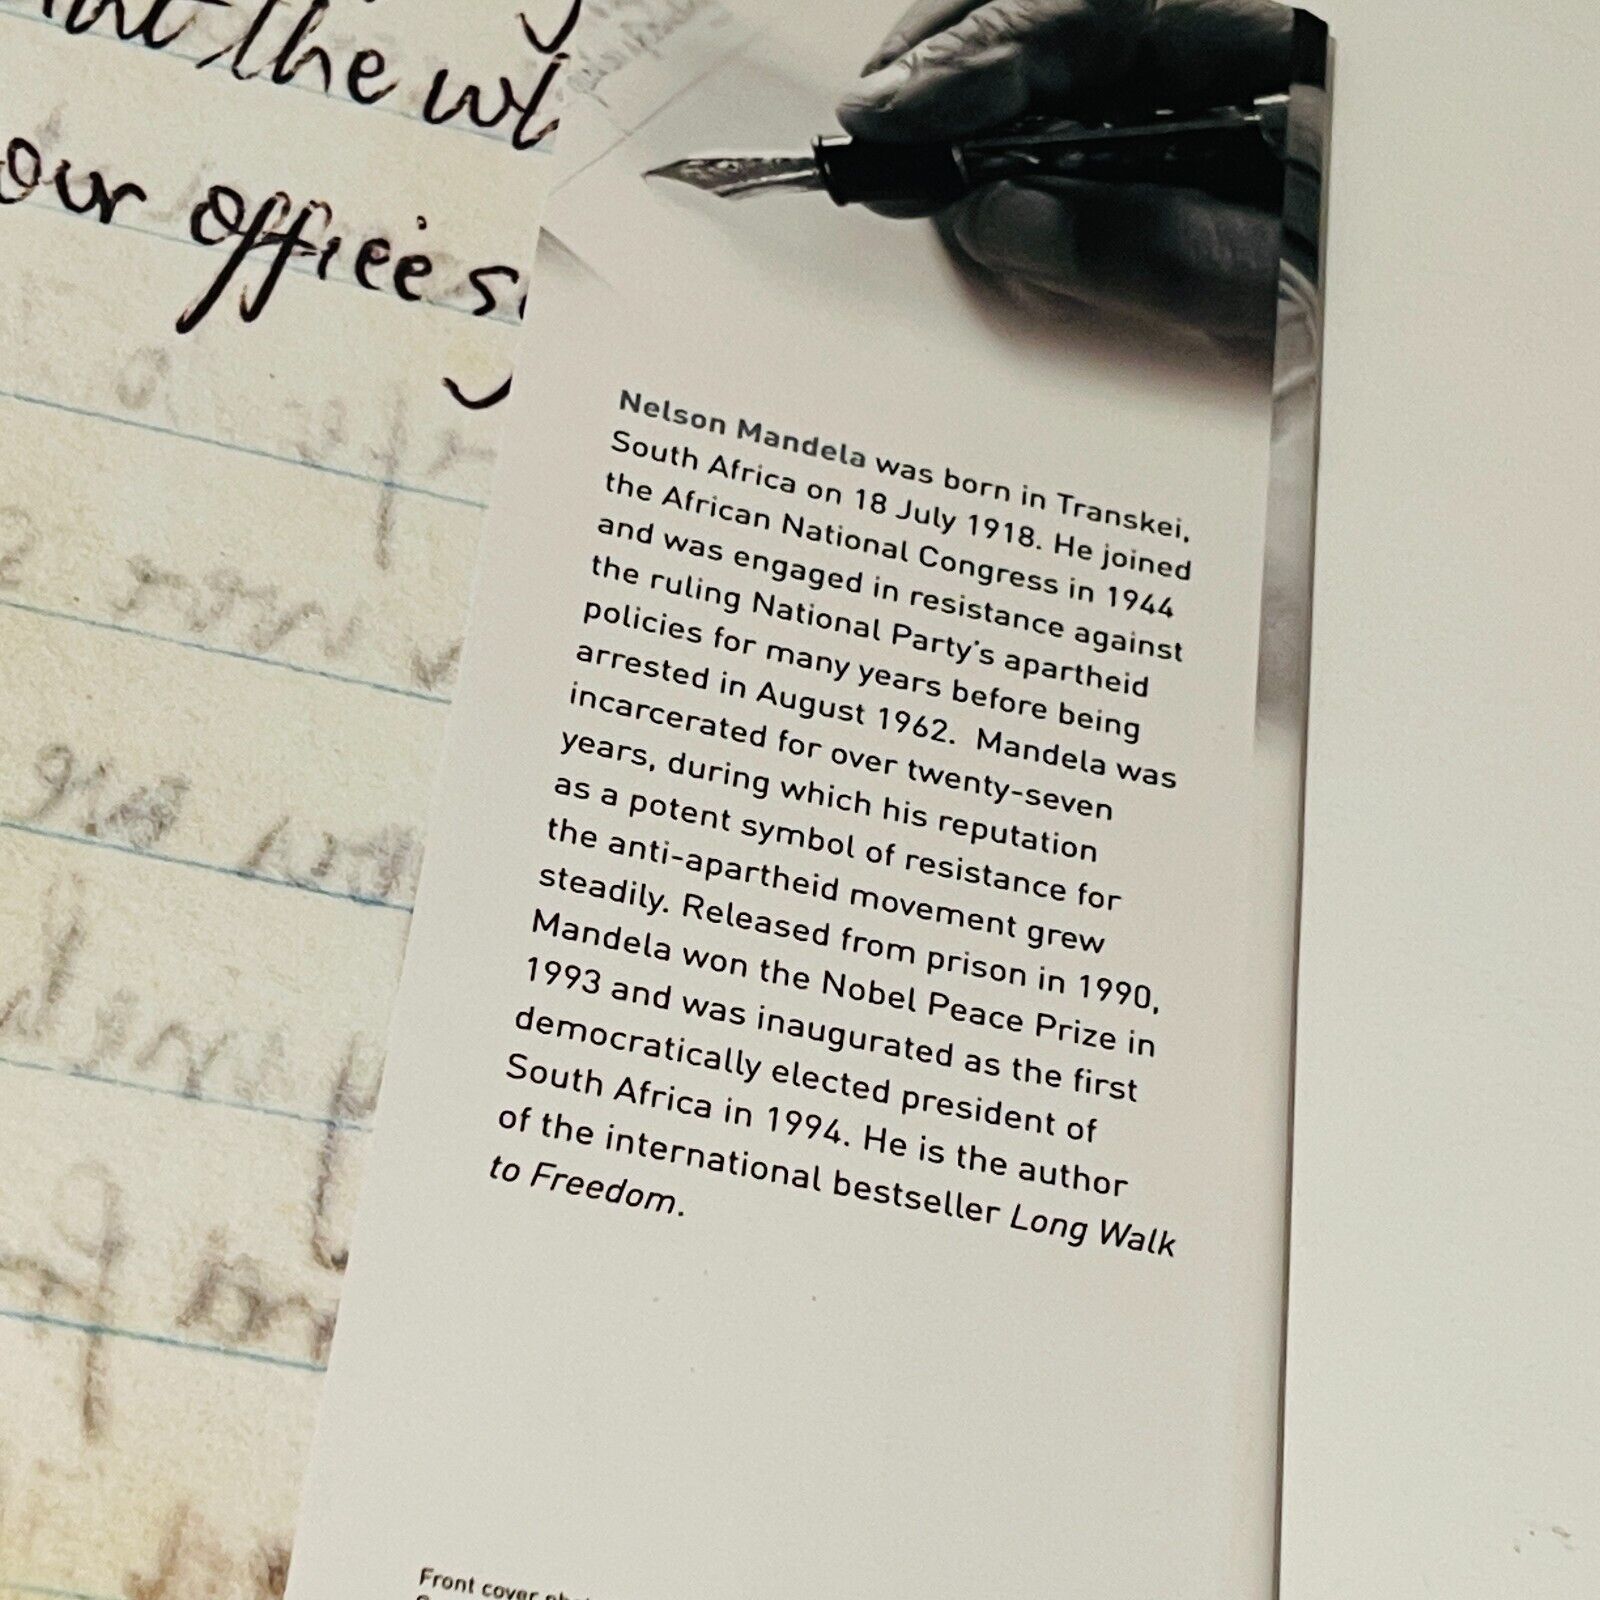 the
our offices
Nelson Mandela was born in Transkei,
South Africa on 18 July 1918. He joined
the African National Congress in 1944
and was engaged in resistance against
the ruling National Party's apartheid
policies for many years before being
arrested in August 1962. Mandela was
incarcerated for over twenty-seven
years, during which his reputation
as a potent symbol of resistance for
the anti-apartheid movement grew
steadily. Released from prison in 1990,
Mandela won the Nobel Peace Prize in
1993 and was inaugurated as the first
democratically elected president of
South Africa in 1994. He is the author
of the international bestseller Long Walk
to Freedom.
Front cover